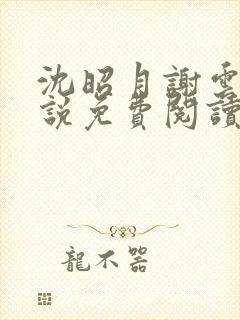 沈昭月謝雲
說免費閱讀
龍不器